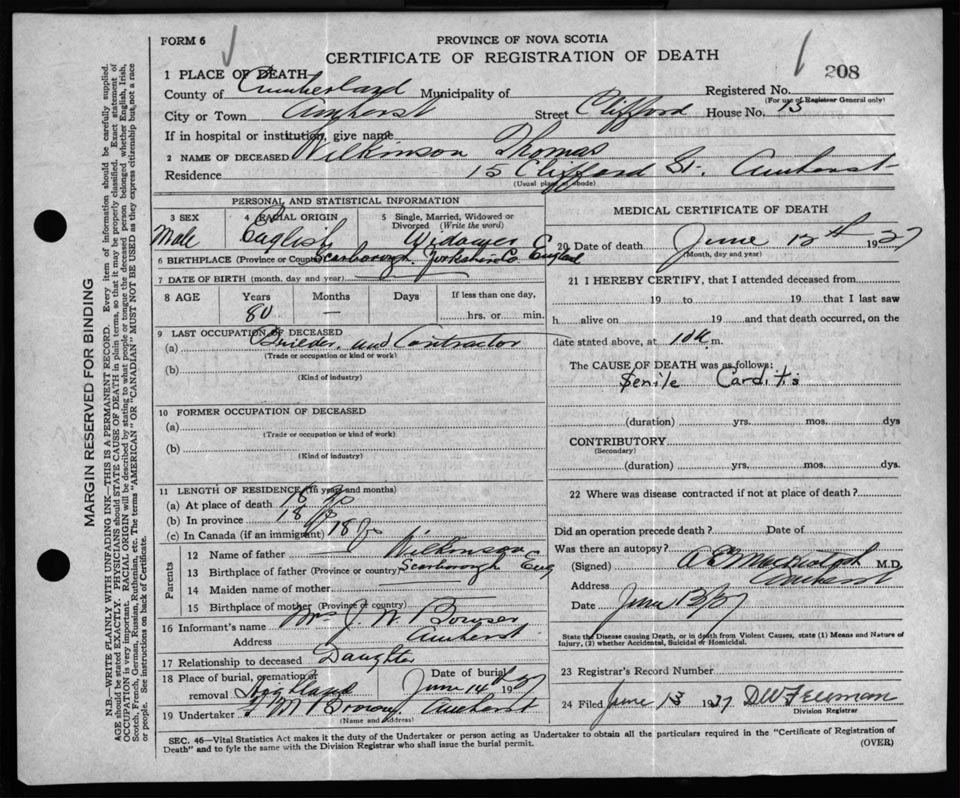 FORM 6
PROVINCE OF NOVA SCOTIA
CERTIFICATE OF REGISTRATION OF DEATH
208
1 PLACE OF DEATH
County of Cumberland Municipality of Registered No.
(For use of Registrar General only)
City or Town Amherst Street Clifford House No. 15
If in hospital or institution, give name
2 NAME OF DECEASED Wilkinson Thomas
Residence 15 Clifford St. Amherst
(Usual place of abode)
PERSONAL AND STATISTICAL INFORMATION
3 SEX 4 RACIAL ORIGIN 5 Single, Married, Widowed or Divorced (Write the word)
Male English Widower
6 BIRTHPLACE (Province or Country) Scarborough Yorkshire Co. England
7 DATE OF BIRTH (month, day and year)
8 AGE Years Months Days If less than one day,
80 — hrs. or min.
9 LAST OCCUPATION OF DECEASED
(a) Builder and Contractor
(Trade or occupation or kind or work)
(b)
(Kind of industry)
10 FORMER OCCUPATION OF DECEASED
(a)
(Trade or occupation or kind of work)
(b)
(Kind of industry)
11 LENGTH OF RESIDENCE (in years and months)
(a) At place of death 18
(b) In province 18
(c) In Canada (if an immigrant) 18
Parents
12 Name of father Wilkinson
13 Birthplace of father (Province or country) Scarborough Eng
14 Maiden name of mother
15 Birthplace of mother (Province or country)
16 Informant's name Mrs J. W. Bowser
Address Amherst
17 Relationship to deceased Daughter
18 Place of burial, cremation or removal Highland Date of burial June 14 1937
19 Undertaker F M Brown Amherst
(Name and Address)
MEDICAL CERTIFICATE OF DEATH
20 Date of death June 12th 1937
(Month, day and year)
21 I HEREBY CERTIFY, that I attended deceased from
19 to 19 that I last saw
h alive on 19 and that death occurred, on the
date stated above, at 10 a m.
The CAUSE OF DEATH was as follows:
Senile Carditis
(duration) yrs. mos. dys
CONTRIBUTORY
(Secondary)
(duration) yrs. mos. dys.
22 Where was disease contracted if not at place of death?
Did an operation precede death? Date of
Was there an autopsy?
(Signed) M.D.
Address Amherst
Date June 13/37
State the Disease causing Death, or in death from Violent Causes, state (1) Means and Nature of
Injury, (2) whether Accidental, Suicidal or Homicidal.
23 Registrar's Record Number
24 Filed June 13 1937
Division Registrar
SEC. 46—Vital Statistics Act makes it the duty of the Undertaker or person acting as Undertaker to obtain all the particulars required in the "Certificate of Registration of
Death" and to fyle the same with the Division Registrar who shall issue the burial permit.
(OVER)
MARGIN RESERVED FOR BINDING
N.B.—WRITE PLAINLY WITH UNFADING INK—THIS IS A PERMANENT RECORD. Every item of information should be carefully supplied.
AGE should be stated EXACTLY. PHYSICIANS should STATE CAUSE OF DEATH in plain terms, so that it may be properly classified. Exact statement of
OCCUPATION is very important. RACIAL ORIGIN will be described by stating to what people or tongue the deceased person belonged whether English, Irish,
Scotch, French, German, Russian, Ruthenian, etc. The terms "AMERICAN" OR "CANADIAN" MUST NOT BE USED as they express citizenship but not a race
or people. See instructions on back of Certificate.